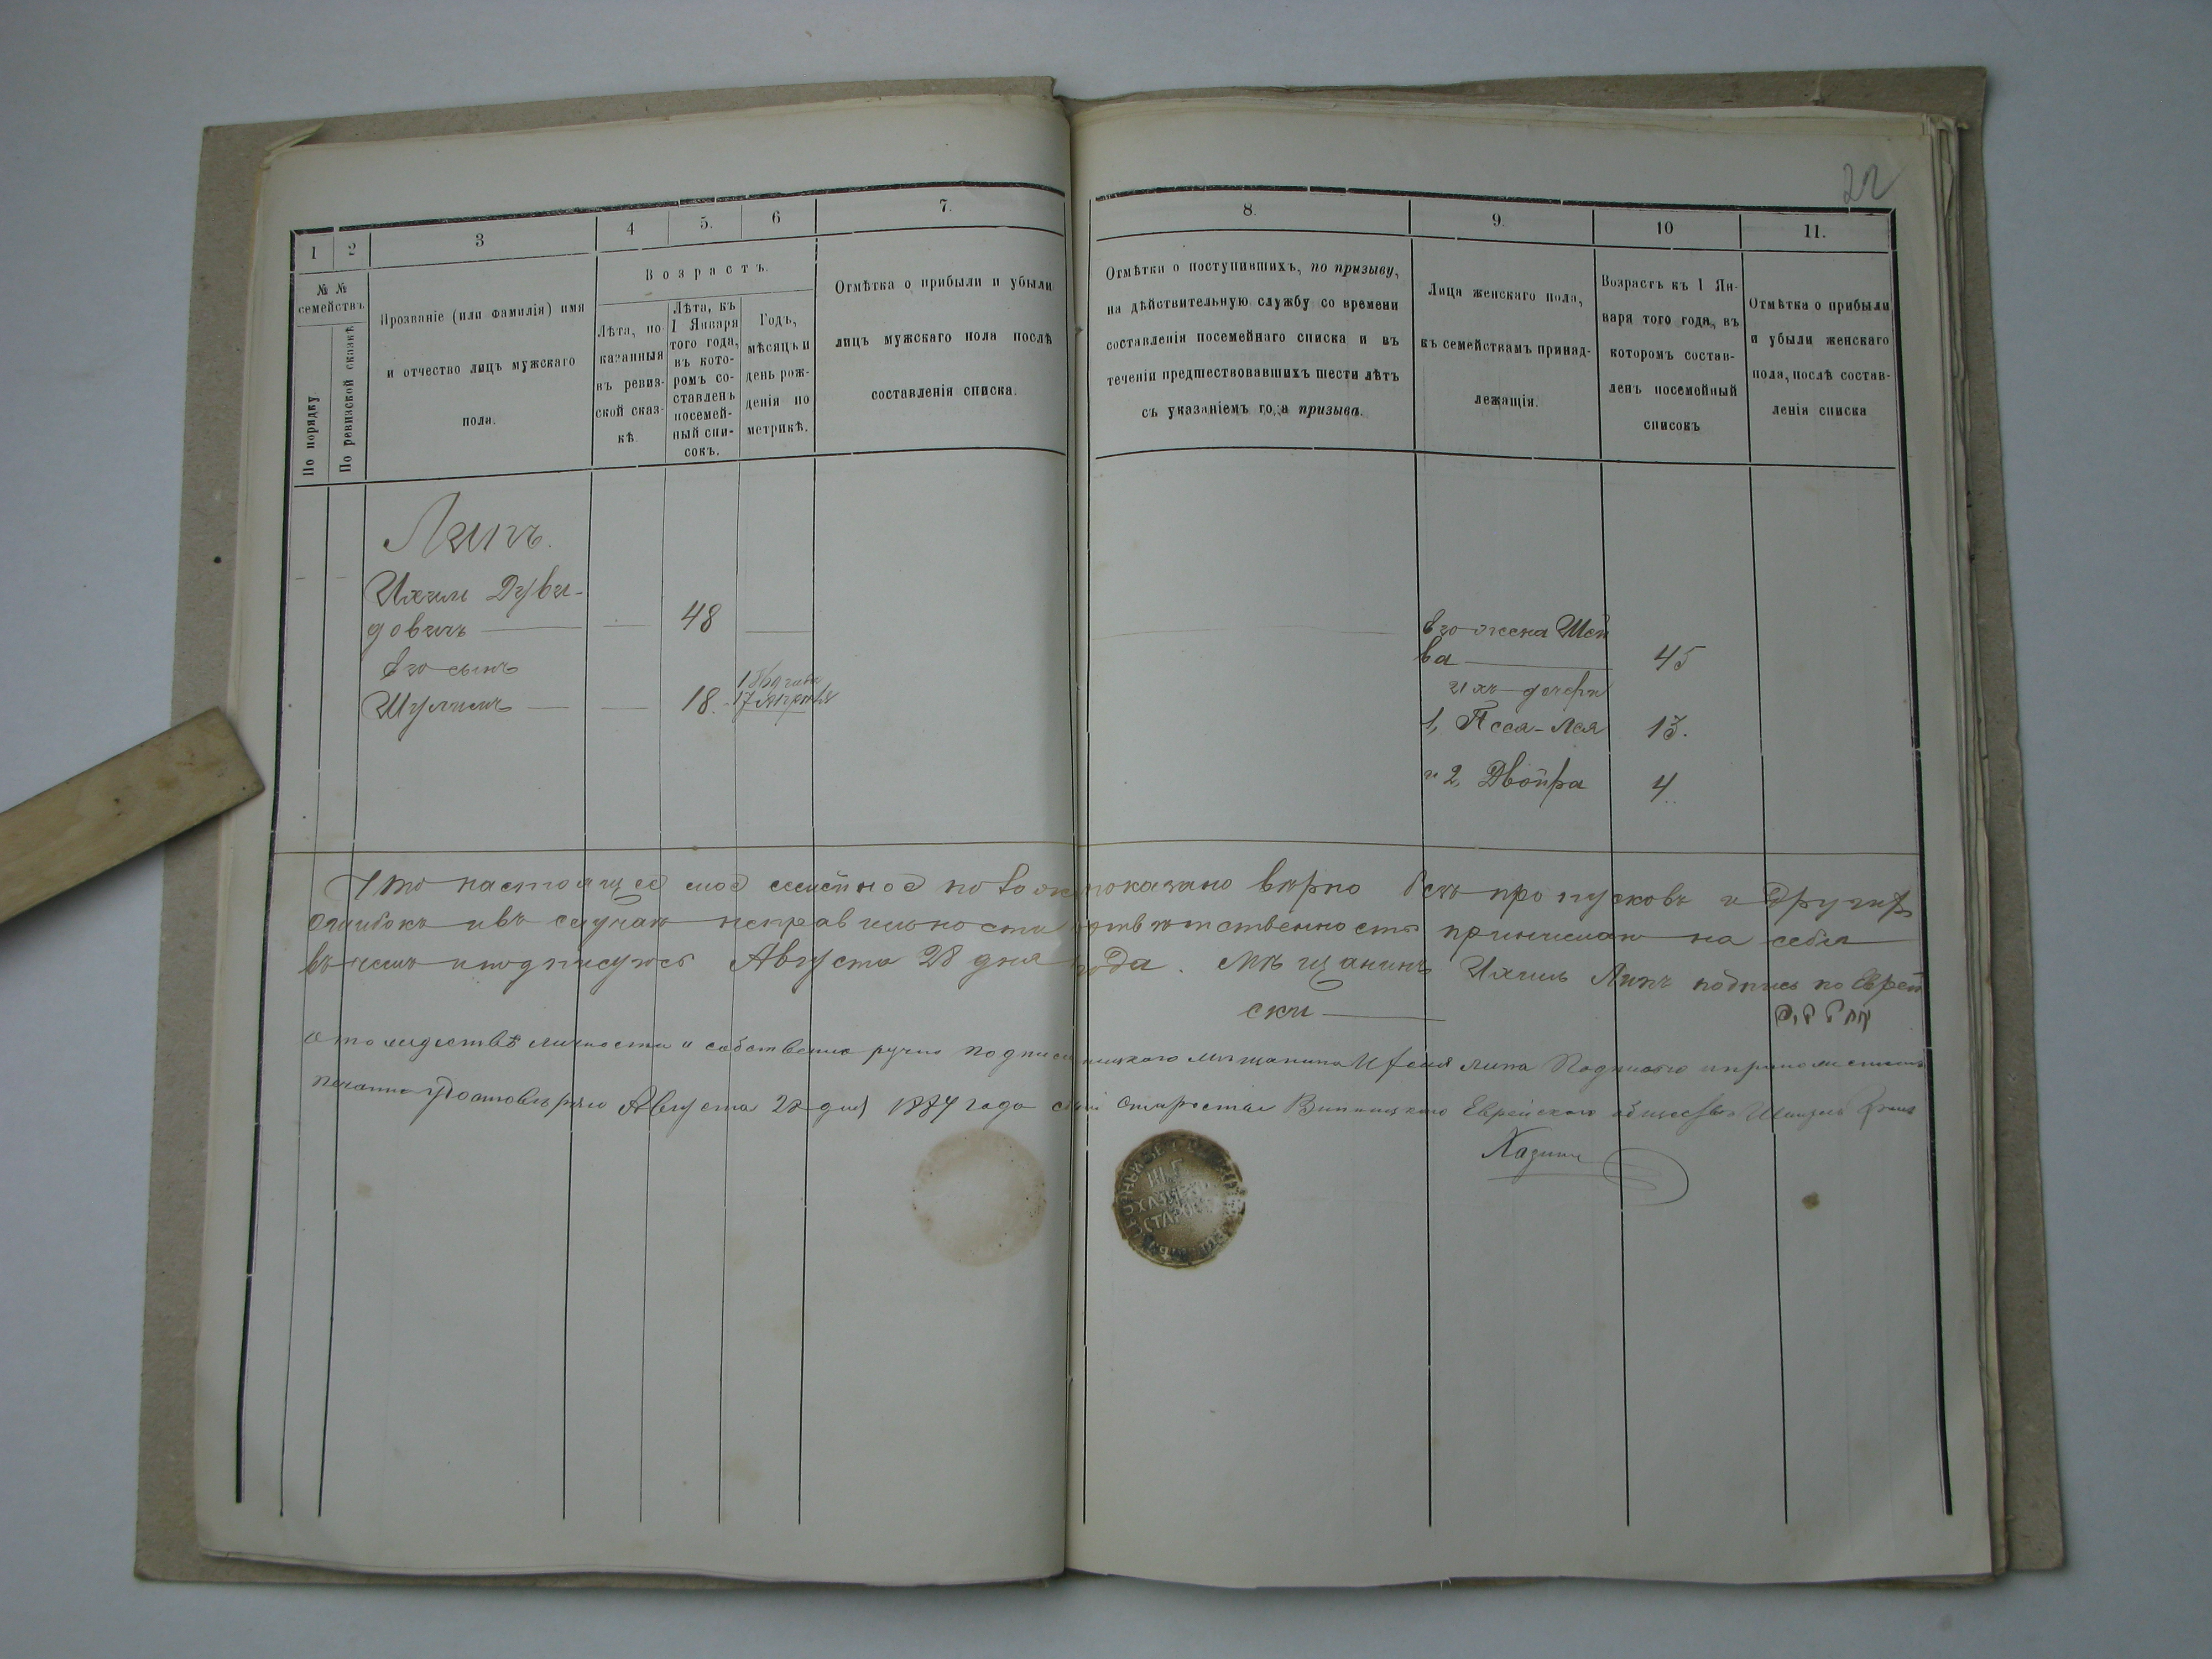 22
1
2
3
4
5.
6
7.
8.
9.
10
11.
№ №
семействъ
По порядку
По ревизской сказкѣ
Прозваніе (или Фамилія) имя
и отчество лицъ мужскаго
пола.
Возрастъ.
Лѣта, по-
казанныя
въ ревиз-
ской сказ-
кѣ
Лѣта, къ
1 Января
того года,
въ кото-
ромъ со-
ставленъ
посемей-
ный спи-
сокъ.
Годъ,
мѣсяцъ и
день рож-
денія по
метрикѣ.
Отмѣтка о прибыли и убыли
лицъ мужскаго пола послѣ
составленія списка.
Отмѣтки о поступившихъ, по призыву,
на дѣйствительную службу со времени
составленіи посемейнаго списка и въ
теченіи предшествовавшихъ шести лѣтъ
съ указаніемъ года призыва.
Лица женскаго пола,
къ семействамъ принад-
лежащія.
Возрастъ къ 1 Ян-
варя того года, въ
которомъ состав-
ленъ посемейный
списокъ
Отмѣтка о прибыли
и убыли женскаго
пола, послѣ состав-
ленія списка
Липъ.
Ихиль Дуви-
довичъ — — 48 —
его сынъ
Шулимъ — — 18. 17 Апреля
его жена Шей
ва — 45
ихъ дочери
1, Песя-Лея 13.
и 2, Двойра 4.
Что настоящее мое семейное показано верно безъ пропусковъ и других
ошибокъ и въ случае неправильности ответственность принимаю на себя
въ чемъ и подписуюсь Августа 28 дня года. Мѣщанинъ Ихиль Липъ подпись по Еврей
ски —
О тождествѣ личности и собственно ручно подписи мещанина Липа Подписью и приложениемъ
печати удостоверяю Августа 28 дня 1884 года Староста Винницкаго Еврейскаго общества
Хазинъ
Ш. Г.
СТАРОС